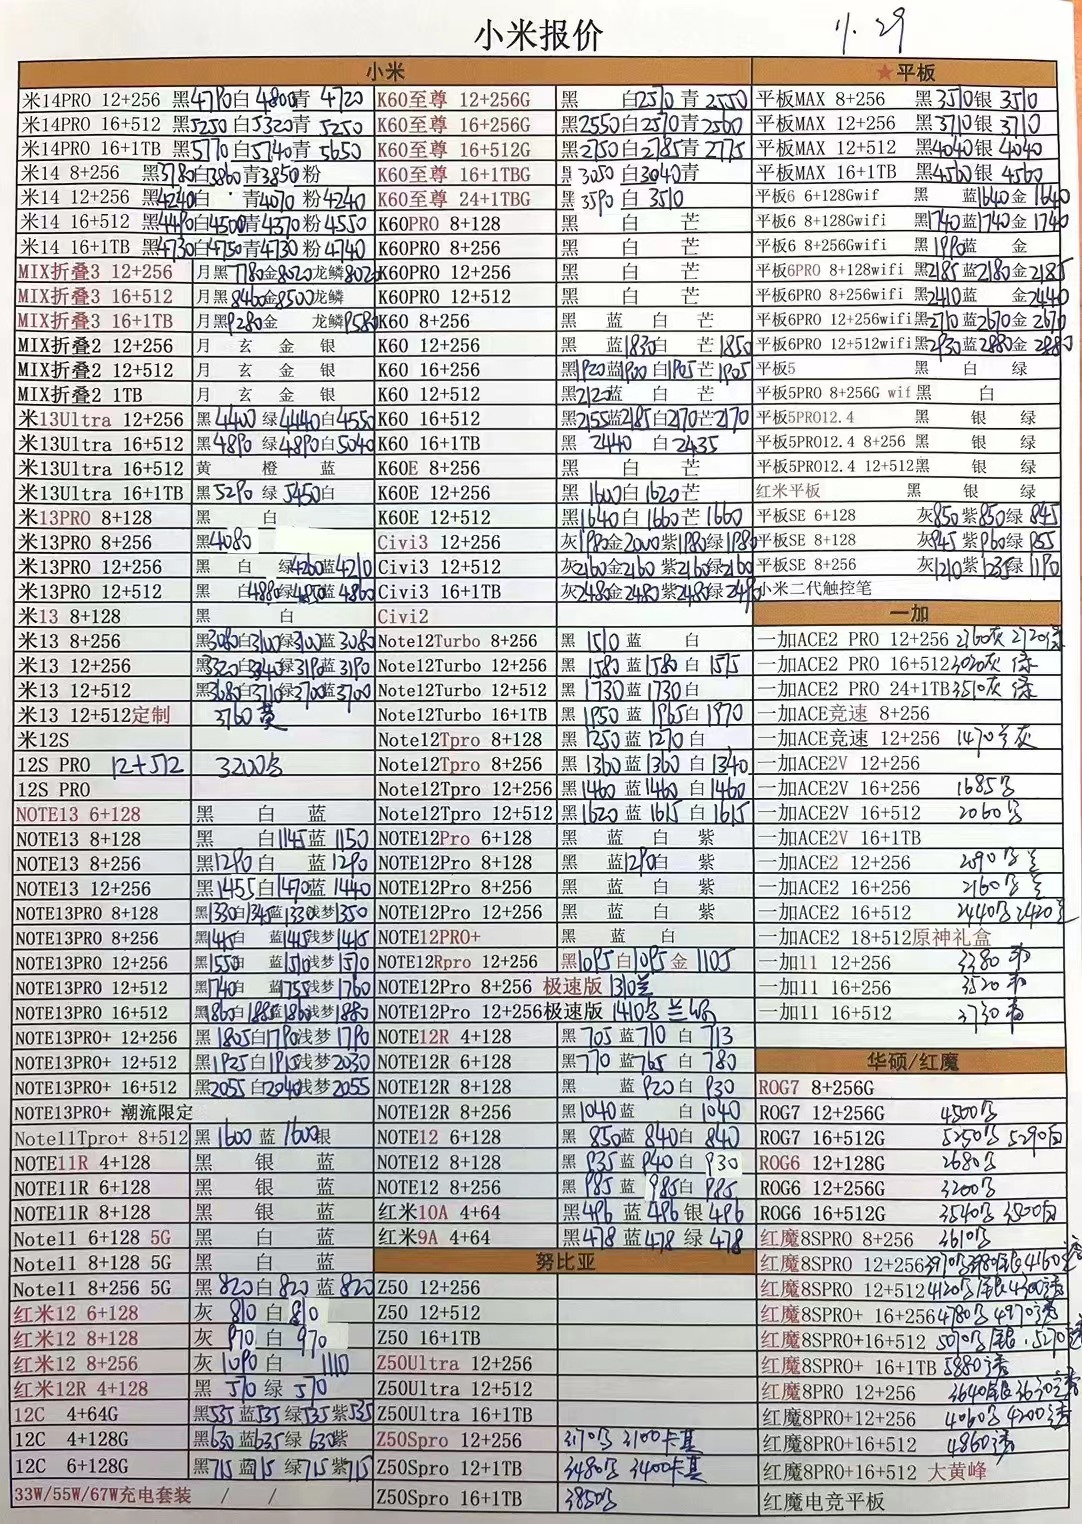 小米报价 11.29
小米
米14PRO 12+256 黑4790白4800青4720
米14PRO 16+512 黑5250白5320青5250
米14PRO 16+1TB 黑5770白5740青5650
米14 8+256 黑3780白3860青3850粉
米14 12+256 黑4240白 青4070粉4240
米14 16+512 黑4490白4500青4370粉4550
米14 16+1TB 黑4730白4750青4730粉4740
MIX折叠3 12+256 月黑7780金8020龙鳞8020
MIX折叠3 16+512 月黑8460金8500龙鳞
MIX折叠3 16+1TB 月黑9280金 龙鳞9580
MIX折叠2 12+256 月 玄 金 银
MIX折叠2 12+512 月 玄 金 银
MIX折叠2 1TB 月 玄 金 银
米13Ultra 12+256 黑4400绿4440白4550
米13Ultra 16+512 黑4890绿4890白5040
米13Ultra 16+512 黄 橙 蓝
米13Ultra 16+1TB 黑5290绿5450白
米13PRO 8+128 黑 白
米13PRO 8+256 黑4080
米13PRO 12+256 黑 白 绿4260蓝4210
米13PRO 12+512 黑 白4880绿4850蓝4860
米13 8+128 黑 白
米13 8+256 黑3080白3100绿3100蓝3080
米13 12+256 黑3320白3340绿3190蓝3190
米13 12+512 黑3680白3710绿3700蓝3700
米13 12+512定制 3760黄
米12S
12S PRO 12+512 3200
12S PRO
NOTE13 6+128 黑 白 蓝
NOTE13 8+128 黑 白1145蓝1150
NOTE13 8+256 黑1290白 蓝1290
NOTE13 12+256 黑1455白1470蓝1440
NOTE13PRO 8+128 黑1330白1345蓝1330浅梦1350
NOTE13PRO 8+256 黑1415白 蓝1415浅梦1415
NOTE13PRO 12+256 黑1550白 蓝1510浅梦1570
NOTE13PRO 12+512 黑1740白 蓝1755浅梦1760
NOTE13PRO 16+512 黑1860白1885蓝1860浅梦1880
NOTE13PRO+ 12+256 黑1805白1790浅梦1790
NOTE13PRO+ 12+512 黑1925白1915浅梦2030
NOTE13PRO+ 16+512 黑2055白2040浅梦2055
NOTE13PRO+ 潮流限定
Note11Tpro+ 8+512 黑1600蓝1600银
NOTE11R 4+128 黑 银 蓝
NOTE11R 6+128 黑 银 蓝
NOTE11R 8+128 黑 银 蓝
Note11 6+128 5G 黑 白 蓝
Note11 8+128 5G 黑 白 蓝
Note11 8+256 5G 黑820白820蓝820
红米12 6+128 灰810白810
红米12 8+128 灰970白970
红米12 8+256 灰1090白1110
红米12R 4+128 黑570绿570
12C 4+64G 黑535蓝535绿535紫535
12C 4+128G 黑630蓝635绿630紫
12C 6+128G 黑715蓝715绿715紫715
33W/55W/67W充电套装 / /
K60至尊 12+256G 黑 白2570青2550
K60至尊 16+256G 黑2550白2570青2560
K60至尊 16+512G 黑2750白2785青2775
K60至尊 16+1TBG 黑3050白3040青
K60至尊 24+1TBG 黑3590白3510
K60PRO 8+128 黑 白 芒
K60PRO 8+256 黑 白 芒
K60PRO 12+256 黑 白 芒
K60PRO 12+512 黑 白 芒
K60 8+256 黑 蓝 白 芒
K60 12+256 黑 蓝1830白 芒1850
K60 16+256 黑1920蓝1900白1905芒1905
K60 12+512 黑2120蓝 白 芒
K60 16+512 黑2155蓝2185白2170芒2170
K60 16+1TB 黑2440白2435
K60E 8+256 黑 白 芒
K60E 12+256 黑1600白1620芒
K60E 12+512 黑1640白1660芒1660
Civi3 12+256 灰1980金2000紫1980绿1980
Civi3 12+512 灰2160金2160紫2160绿2160
Civi3 16+1TB 灰2480金2480紫2480绿2490
Civi2
Note12Turbo 8+256 黑1510蓝 白
Note12Turbo 12+256 黑1580蓝1580白1575
Note12Turbo 12+512 黑1730蓝1730白
Note12Turbo 16+1TB 黑1950蓝1965白1970
Note12Tpro 8+128 黑1250蓝1270白
Note12Tpro 8+256 黑1360蓝1360白1340
Note12Tpro 12+256 黑1460蓝1460白1460
Note12Tpro 12+512 黑1620蓝1615白1615
NOTE12Pro 6+128 黑 蓝 白 紫
NOTE12Pro 8+128 黑 蓝1290白 紫
NOTE12Pro 8+256 黑 蓝 白 紫
NOTE12Pro 12+256 黑 蓝 白 紫
NOTE12PRO+ 黑 蓝 白
NOTE12Rpro 12+256 黑1095白1095金1105
NOTE12Pro 8+256 极速版 1310兰
NOTE12Pro 12+256极速版 1410 兰
NOTE12R 4+128 黑705蓝710白713
NOTE12R 6+128 黑770蓝765白780
NOTE12R 8+128 黑 蓝920白930
NOTE12R 8+256 黑1040蓝 白1040
NOTE12 6+128 黑850蓝840白840
NOTE12 8+128 黑935蓝940白930
NOTE12 8+256 黑985蓝985白985
红米10A 4+64 黑496蓝496银496
红米9A 4+64 黑478蓝478绿478
努比亚
Z50 12+256
Z50 12+512
Z50 16+1TB
Z50Ultra 12+256
Z50Ultra 12+512
Z50Ultra 16+1TB
Z50Spro 12+256 3170 3100卡其
Z50Spro 12+1TB 3480 3400卡其
Z50Spro 16+1TB 3850
★平板
平板MAX 8+256 黑3510银3510
平板MAX 12+256 黑3710银3710
平板MAX 12+512 黑4040银4040
平板MAX 16+1TB 黑4560银4560
平板6 6+128Gwif 黑 蓝1640金1640
平板6 8+128Gwifi 黑1740蓝1740金1740
平板6 8+256Gwifi 黑1990蓝 金
平板6PRO 8+128wifi 黑2185蓝2180金2185
平板6PRO 8+256wifi 黑2410蓝 金2440
平板6PRO 12+256wifi黑2710蓝2670金2670
平板6PRO 12+512wifi黑2930蓝2880金2880
平板5 黑 白 绿
平板5PRO 8+256G wif黑 白
平板5PRO12.4 黑 银 绿
平板5PRO12.4 8+256 黑 银 绿
平板5PRO12.4 12+512黑 银 绿
红米平板 黑 银 绿
平板SE 6+128 灰850紫850绿845
平板SE 8+128 灰945紫960绿955
平板SE 8+256 灰1210紫1235绿1190
小米二代触控笔
一加
一加ACE2 PRO 12+256 2760灰2720绿
一加ACE2 PRO 16+512 3020灰 绿
一加ACE2 PRO 24+1TB 3510灰 绿
一加ACE竞速 8+256
一加ACE竞速 12+256 1470兰灰
一加ACE2V 12+256
一加ACE2V 16+256 1685
一加ACE2V 16+512 2060
一加ACE2V 16+1TB
一加ACE2 12+256 2090 兰
一加ACE2 16+256 2160 兰
一加ACE2 16+512 2440 2420兰
一加ACE2 18+512原神礼盒
一加11 12+256 3380
一加11 16+256 3520
一加11 16+512 3730
华硕/红魔
ROG7 8+256G
ROG7 12+256G 4500
ROG7 16+512G 5250 5290白
ROG6 12+128G 2680
ROG6 12+256G 3200
ROG6 16+512G 3540 3500白
红魔8SPRO 8+256 3610
红魔8SPRO 12+256 3970 银4160透
红魔8SPRO 12+512 4120 银4300透
红魔8SPRO+ 16+256 4780 4970透
红魔8SPRO+16+512 5070 银 5270透
红魔8SPRO+ 16+1TB 5880透
红魔8PRO 12+256 3640银3630透
红魔8PRO+12+256 4060 4200透
红魔8PRO+16+512 4860透
红魔8PRO+16+512 大黄峰
红魔电竞平板